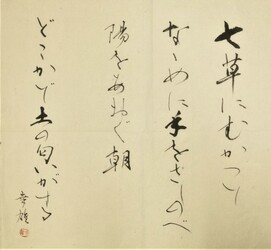 七草にむかつて
ななめに手をさしのべ
陽をあおぐ朝
どこかで土の匂いがする
幸雄